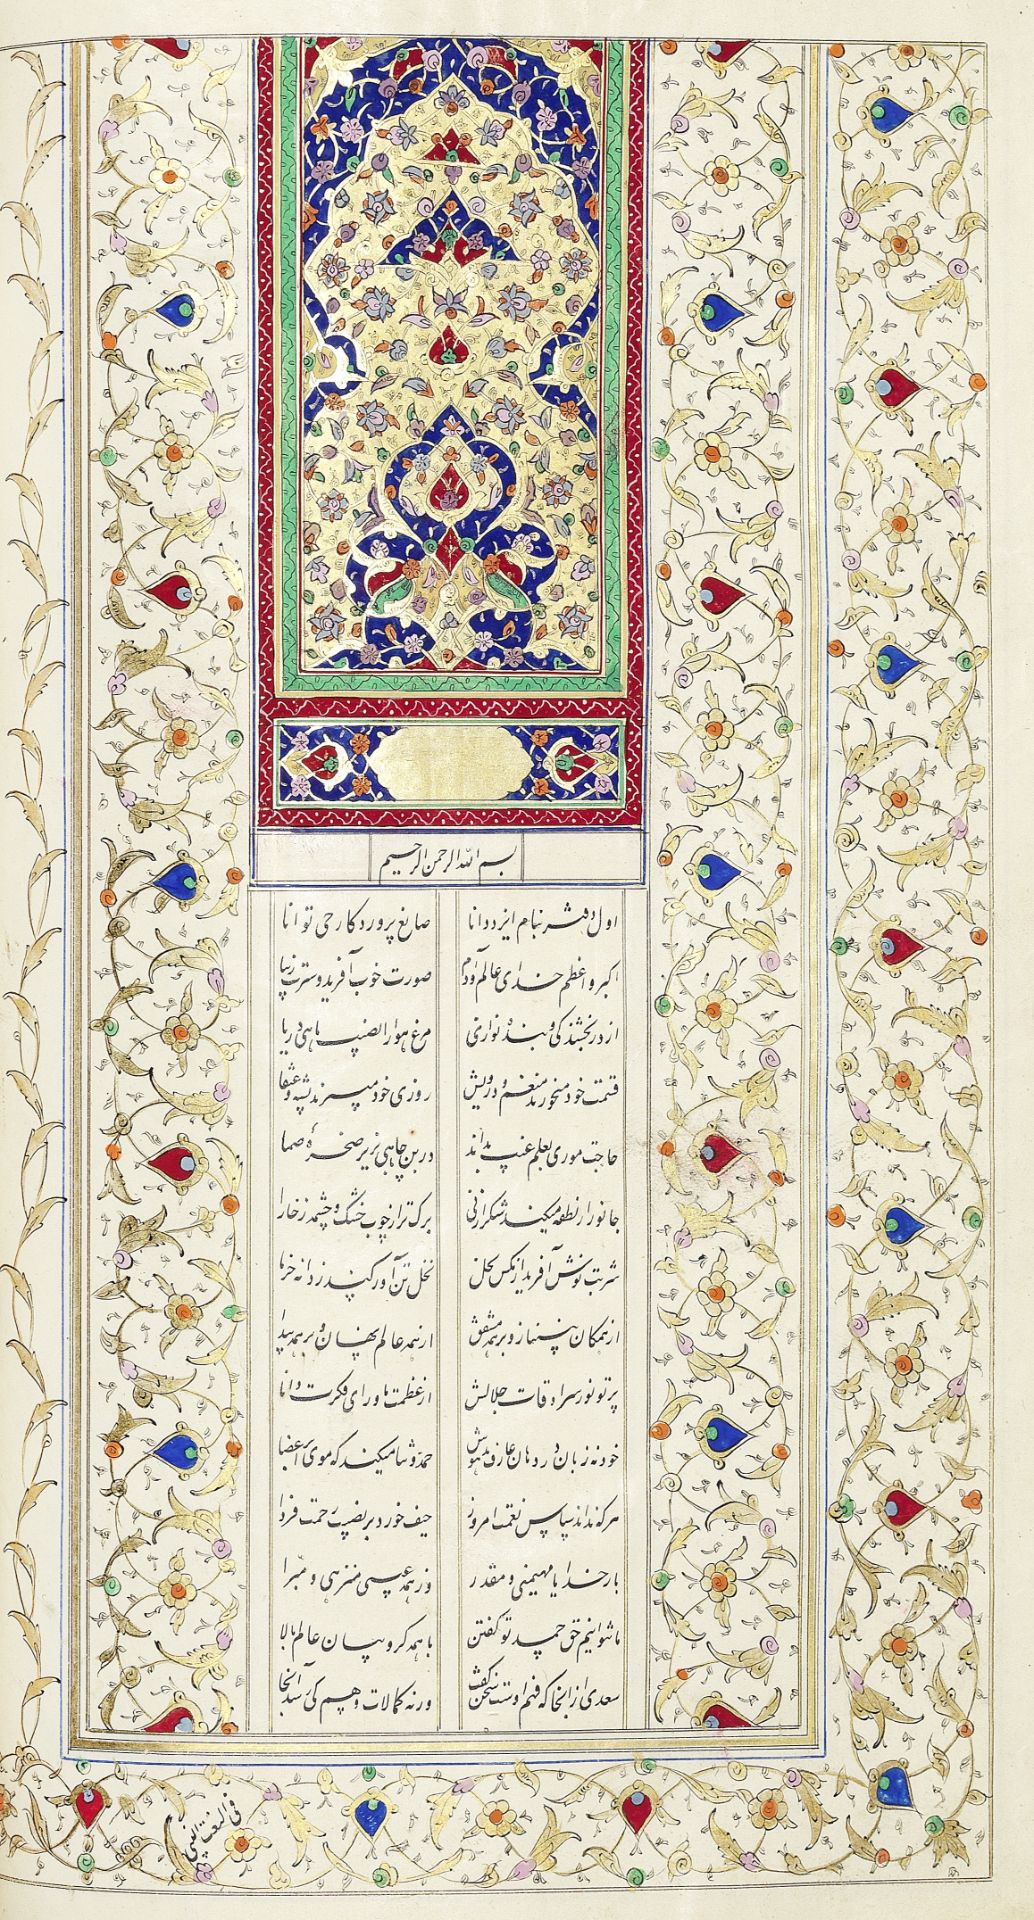 بسم الله الرحمن الرحیم
اول دفتر بنام ایزد دانا صانع پروردگار حی توانا
اکبر و اعظم خدای عالم و آدم صورت خوب آفرید و سیرت زیبا
از در بخشندگی و بنده نوازی مرغ هوا را نصیب ماهی دریا
قسمت خود میخورند منعم و درویش روزی خود میبرند پشه و عنقا
حاجت موری بعلم غیب بداند در بن چاهی بزیر صخرهٔ صما
جانور از نطفه میکند شکر از نی برگ تر از چوب خشک و چشمه ز خارا
شربت نوش آفرید از مگس نحل نخل تن آور کند ز دانه خرما
از همگان بینیاز و بر همه مشفق از همه عالم نهان و بر همه پیدا
پرتو نور سرادقات جلالش از عظمت ماورای فکرت دانا
خود نه زبان در دهان عارف مدهوش حمد و ثنا میکند که موی بر اعضا
هر که نداند سپاس نعمت امروز حیف خورد بر نصیب رحمت فردا
بار خدایا مهیمنی و مقدر وز همه عیبی منزهی و مبرا
ما نتوانیم حق حمد تو گفتن با همه کروبیان عالم بالا
سعدی از آنجا که فهم اوست سخن گفت ورنه کمالات وهم کی رسد آنجا
فی النعت النبی